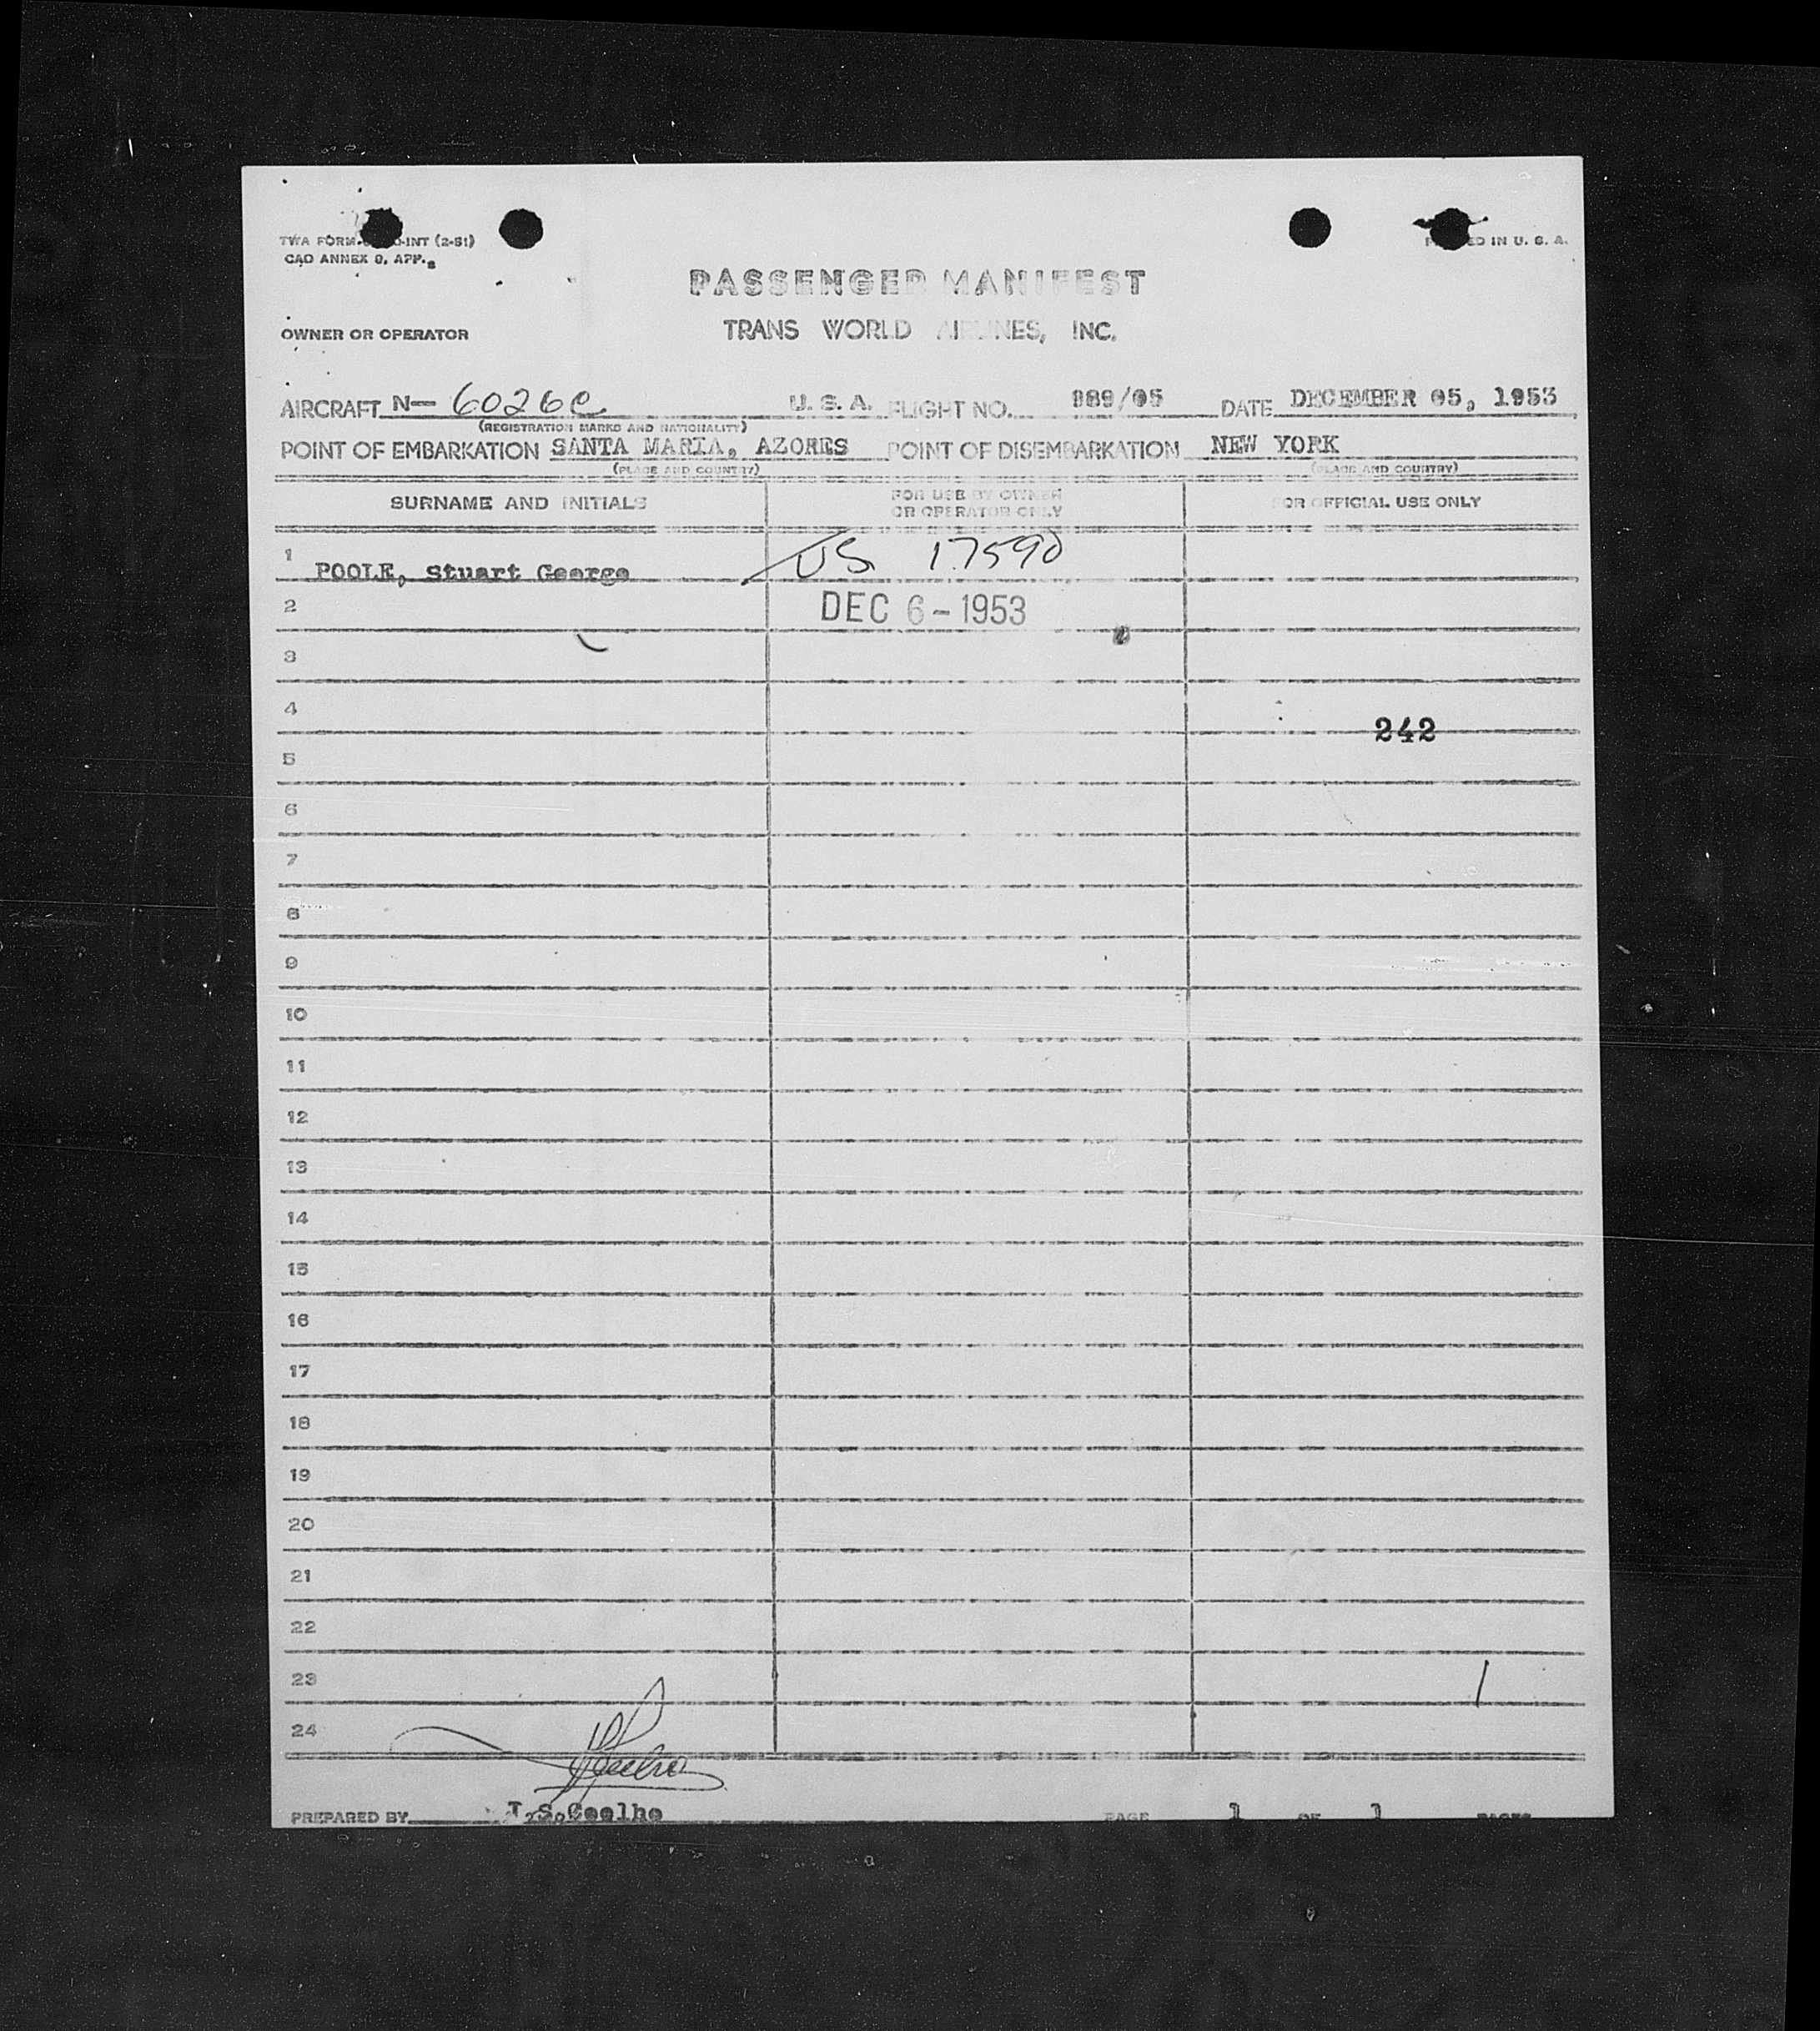 TWA FORM INT (2-51)
CAO ANNEX 9, APP.
IN U. S. A.
PASSENGER MANIFEST
OWNER OR OPERATOR
TRANS WORLD AIRLINES, INC.
AIRCRAFT N— 6026C U. S. A. FLIGHT NO. 989/05 DATE DECEMBER 05, 1953
(REGISTRATION MARKS AND NATIONALITY)
POINT OF EMBARKATION SANTA MARIA, AZORES POINT OF DISEMBARKATION NEW YORK
(PLACE AND COUNTRY) (PLACE AND COUNTRY)
SURNAME AND INITIALS FOR USE BY OWNER OR OPERATOR ONLY FOR OFFICIAL USE ONLY
1 POOLE, Stuart George US 17590
2 DEC 6 - 1953
3
4
242
5
6
7
8
9
10
11
12
13
14
15
16
17
18
19
20
21
22
23 1
24
PREPARED BY J.S.Coelho PAGE 1 OF 1 PAGES